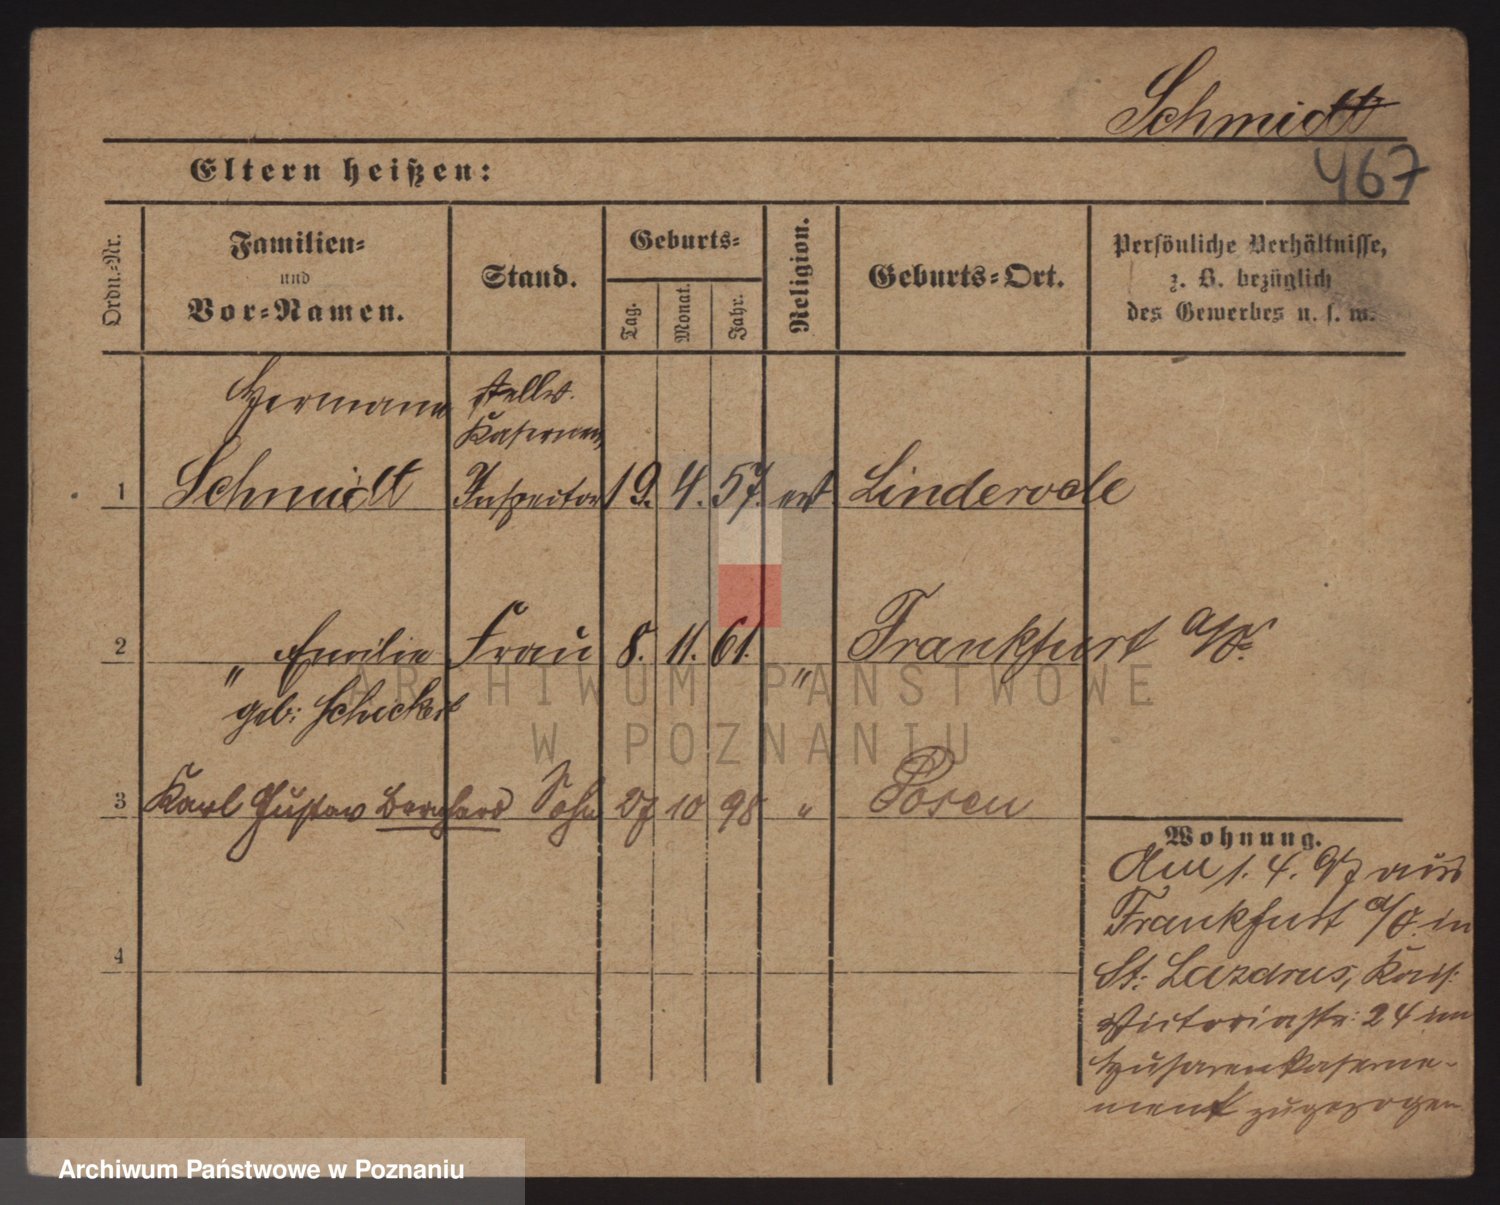 Schmidt
467
Eltern heißen:
Ordn.-Nr.
Familien-
und
Vor-Namen.
Stand.
Geburts-
Tag.
Monat.
Jahr.
Religion.
Geburts-Ort.
Persönliche Verhältnisse,
z. B. bezüglich
des Gewerbes u. s. w.
Hermann stellv.
Kasernen
1 Schmidt Inspector 19. 4. 57. ev. Linderode
2 " Emilie Frau 8. 11. 61. " Frankfurt a/O.
geb: Schickert
3 Karl Gustav Berghard Sohn 27 10 98 " Posen
4
Wohnung.
Am 1. 4. 97 aus
Frankfurt a/O. in
St: Lazarus, Kais:
Victoriastr: 24 im
Husarenkaserne-
ment zugezogen
ARCHIWUM PAŃSTWOWE
W POZNANIU
Archiwum Państwowe w Poznaniu